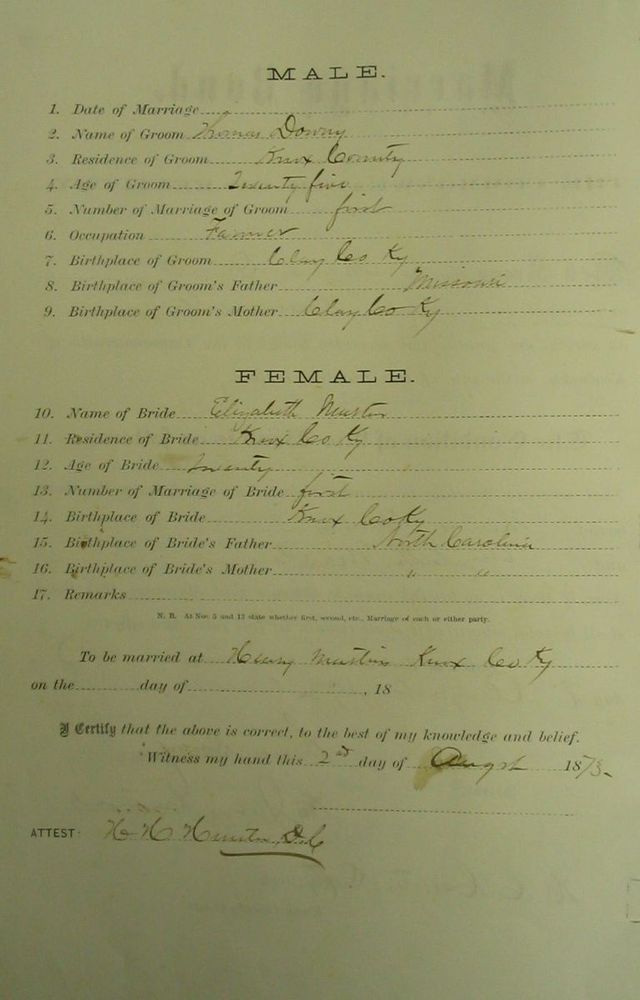 MALE.
1. Date of Marriage
2. Name of Groom Thomas Downy
3. Residence of Groom Knox County
4. Age of Groom Twenty five
5. Number of Marriage of Groom first
6. Occupation Farmer
7. Birthplace of Groom Clay Co Ky
8. Birthplace of Groom's Father Missouri
9. Birthplace of Groom's Mother Clay Co Ky
FEMALE.
10. Name of Bride Elizabeth
11. Residence of Bride Knox Co Ky
12. Age of Bride Twenty
13. Number of Marriage of Bride first
14. Birthplace of Bride Knox Co Ky
15. Birthplace of Bride's Father North Carolina
16. Birthplace of Bride's Mother " "
17. Remarks
N. B. At Nos 5 and 13 state whether first, second, etc., Marriage of each or either party.
To be married at Henry Knox Co Ky
on the day of , 18
I Certify that the above is correct, to the best of my knowledge and belief.
Witness my hand this 2nd day of Augst 187
ATTEST: H H